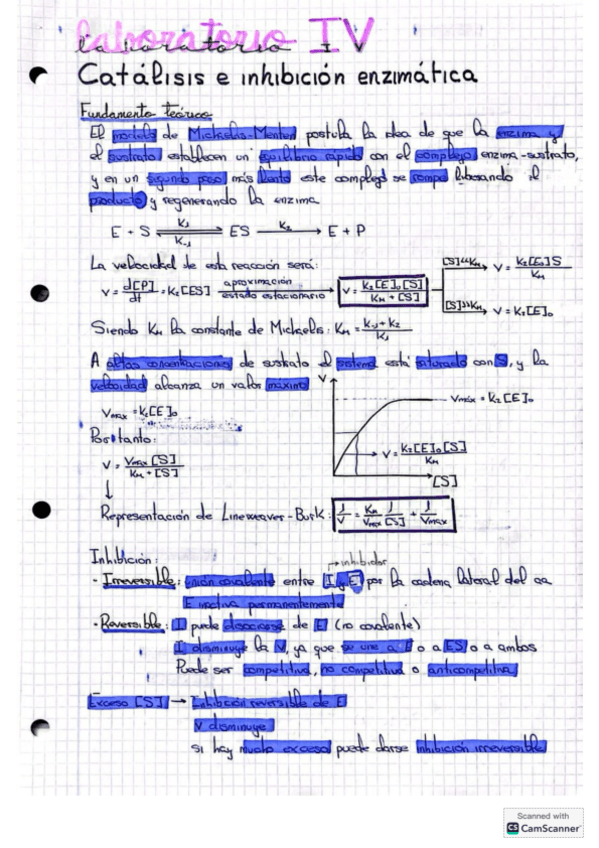 Laboratorio IV
Catálisis e inhibición enzimática
Fundamento teórico
El modelo de Michaelis-Menten postula la idea de que la enzima y
el sustrato establecen un equilibrio rápido con el complejo enzima-sustrato,
y en un segundo paso más lento este complejo se rompe liberando el
producto y regenerando la enzima
E + S ⇌ ES → E + P
K₁
K₋₁
K₂
La velocidad de esta reacción será:
V = d[P]/dt = K₂[ES] aproximación estado estacionario V = K₂[E]₀[S] / (Kₘ + [S])
[S]<<Kₘ V = K₂[E₀]S / Kₘ
[S]>>Kₘ V = K₂[E]₀
Siendo Kₘ la constante de Michaelis: Kₘ = (K₋₁ + K₂) / K₁
A altas concentraciones de sustrato el sistema está saturado con S, y la
velocidad alcanza un valor máximo
Vmax = K₂[E]₀
Por tanto:
V = Vmax [S] / (Kₘ + [S])
V
Vmáx = K₂[E]₀
V = K₂[E]₀[S] / Kₘ
[S]
Representación de Lineweaver-Burk: 1/V = Kₘ/Vmax 1/[S] + 1/Vmax
Inhibición:
inhibidor
- Irreversible: unión covalente entre I y E por la cadena lateral del aa
E inactiva permanentemente
- Reversible: I puede disociarse de E (no covalente)
I disminuye la V, ya que se une a E o a ES o a ambos
Puede ser competitiva, no competitiva o anticompetitiva
Exceso [S] → Inhibición reversible de E
V disminuye
si hay mucho exceso puede darse inhibición irreversible
Scanned with
CS CamScanner